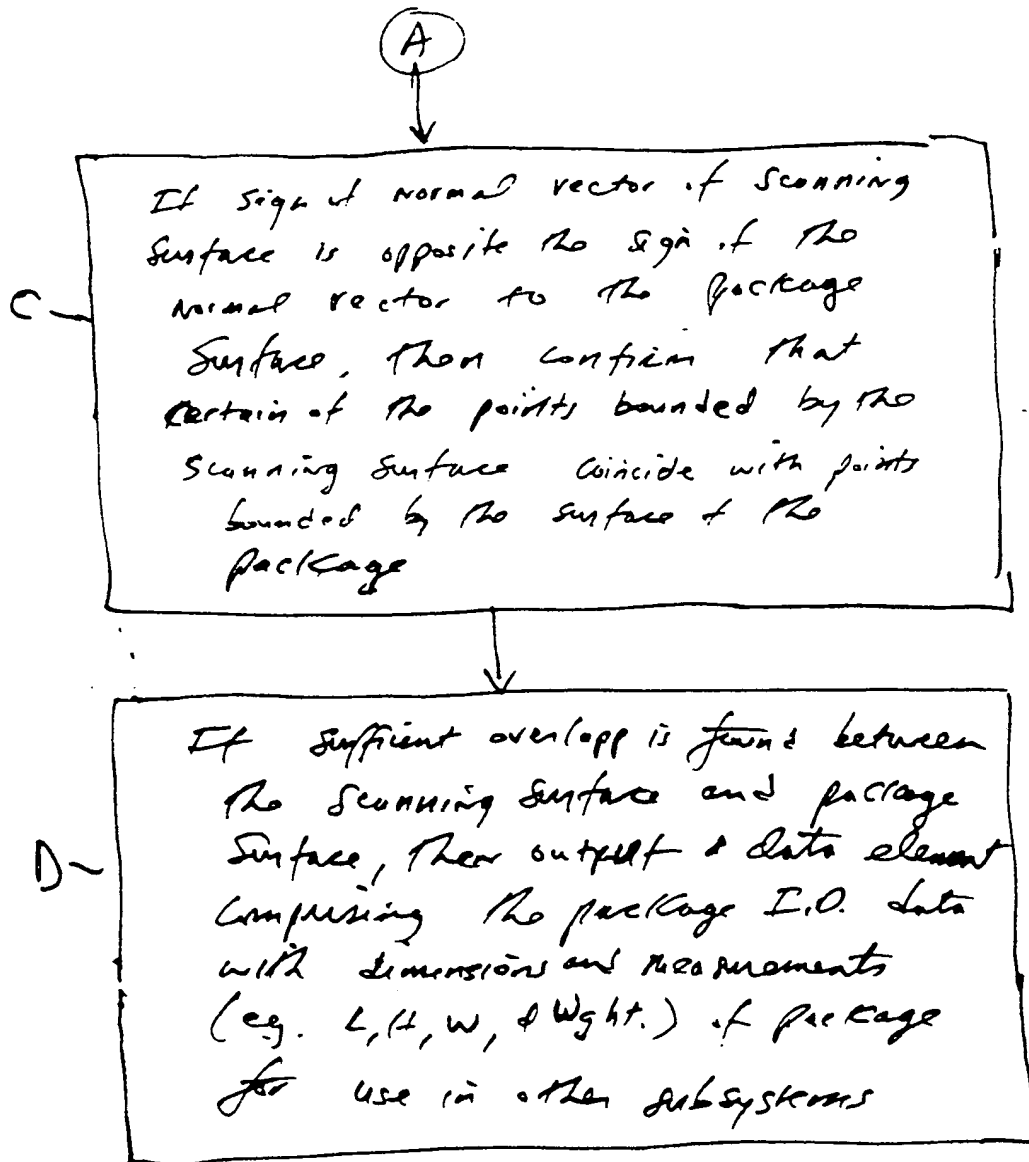 A
C
If sign of normal vector of scanning
surface is opposite the sign of the
normal vector to the package
surface, then confirm that
certain of the points bounded by the
scanning surface coincide with points
bounded by the surface of the
package
D
If sufficient overlapp is found between
the scanning surface and package
surface, then output a data element
comprising the package I.D. data
with dimensions and measurements
(eg. L, H, W, & Wght.) of package
for use in other subsystems